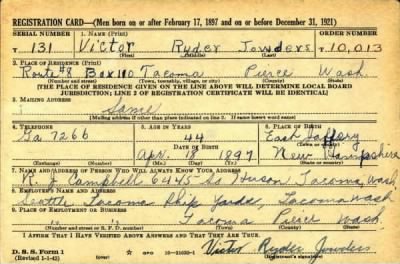 REGISTRATION CARD—(Men born on or after February 17, 1897 and on or before December 31, 1921)
SERIAL NUMBER 1. NAME (Print) ORDER NUMBER
T 131 Victor Ryder Jowders T10,013
(First) (Middle) (Last)
2. PLACE OF RESIDENCE (Print)
Route #8 Box 110 Tacoma Pierce Wash
(Number and street) (Town, township, village, or city) (County) (State)
[THE PLACE OF RESIDENCE GIVEN ON THE LINE ABOVE WILL DETERMINE LOCAL BOARD
JURISDICTION; LINE 2 OF REGISTRATION CERTIFICATE WILL BE IDENTICAL]
3. MAILING ADDRESS
Same
[Mailing address if other than place indicated on line 2. If same insert word same]
4. TELEPHONE 5. AGE IN YEARS 6. PLACE OF BIRTH
Ga 7266 44 East Jaffery
DATE OF BIRTH (Town or county)
Apr. 18 1897 New Hampshire
(Exchange) (Number) (Mo.) (Day) (Yr.) (State or country)
7. NAME AND ADDRESS OF PERSON WHO WILL ALWAYS KNOW YOUR ADDRESS
Campbell 6445 So Tacoma, Wash.
8. EMPLOYER'S NAME AND ADDRESS
Seattle Tacoma Ship Yards, Tacoma Wash
9. PLACE OF EMPLOYMENT OR BUSINESS
" " Tacoma Pierce Wash
(Number and street or R. F. D. number) (Town) (County) (State)
I AFFIRM THAT I HAVE VERIFIED ABOVE ANSWERS AND THAT THEY ARE TRUE.
D. S. S. Form 1
(Revised 1-1-42) GPO 16—21630-1 Victor Ryder Jowders
(Registrant's signature)